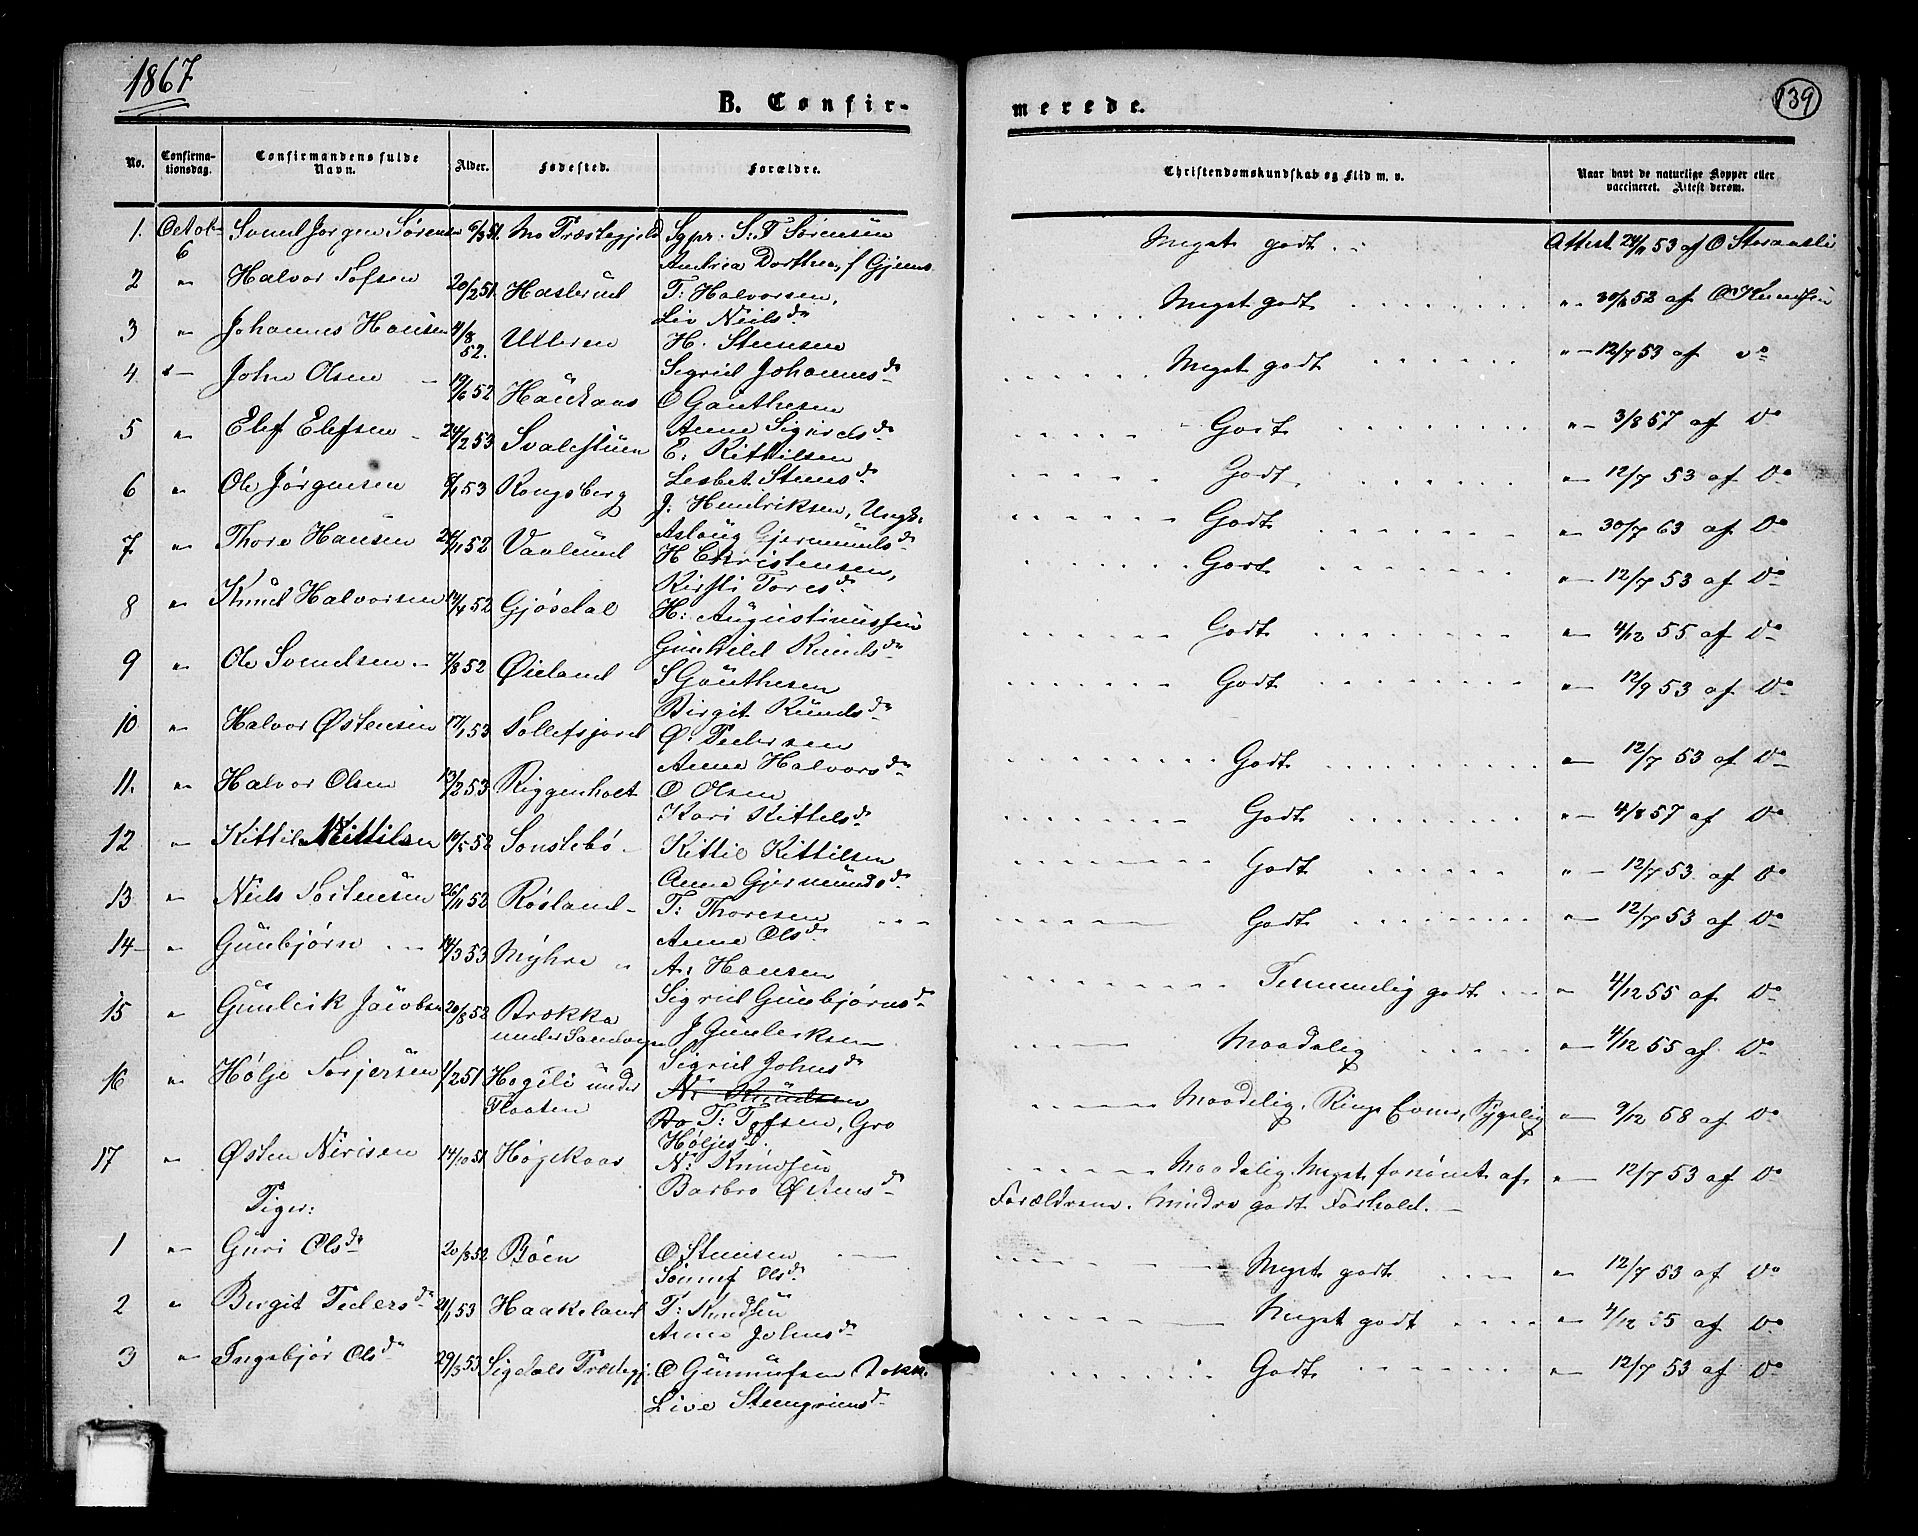 1867
139
B. Confir-
merede.
No.
Confirma-
tionsdag.
Confirmandens fulde
Navn.
Alder.
Fødested.
Forældre.
Christendomskundskab og Flid m. v.
Naar havt de naturlige Kopper eller
vaccineret. Attest derom.
1. Octob 6 Svend Jørgen Sørensen 6/3 51. Mo Præstegjeld Sgpr. S: T Sørensen
Andrea Dorthea, f Gjems
Meget godt Attest 24/11 53 af O Storaasli
2 " Halvor Tofsen 20/2 51 Haslerud T: Halvorsen,
Liv Neilsdr
Meget godt " 30/ 52 af O Knudsen
3 " Johannes Hansen 4/8 52. Ulleren H. Stensen
Sigrid Johannesdr
Meget godt " 12/7 53 af do
4. " John Olsen 19/6 52 Haukaas O Gauthesen
Anne Sigurdsdr
Godt " 3/8 57 af Do
5 " Elef Elefsen 24/2 53 Svalestuen E. Kittilsen
Lesbet Stensdr
Godt " 12/7 53 af Do
6 " Ole Jørgensen 6/1 53 Kongsberg J. Hendriksen, Ungk.
Aslaug Gjermundsdr
Godt " 30/7 63 af Do
7 " Thore Hansen 24/11 52 Vaalund H Christensen,
Kirsti Toresdr
Godt " 12/7 53 af Do
8 " Knud Halvorsen 14/4 52 Gjøsdal H: Augustinussen
Gunhild Knudsdr
Godt " 4/12 55 af Do
9 " Ole Svendsen 7/8 52 Øieland S Gauthesen
Birgit Knudsdr
Godt " 12/9 53 af Do
10 " Halvor Østensen 17/1 53 Tollefsjord Ø: Pedersen
Anne Halvorsdr
Godt " 12/7 53 af Do
11. " Halvor Olsen 13/2 53 Riggenholt O Olsen
Kari Kittelsdr
Godt " 4/8 57 af Do
12 " Kittil Kittilsen 10/5 52 Sønstebø Kittil Kittilsen
Anne Gjermundsdr
Godt " 12/7 53 af Do
13 " Neils Tostensen 26/11 52 Røsland T: Thoresen
Anne Olsdr
Godt " 12/7 53 af Do
14 " Gunbjørn 14/3 53 Myhre A. Hansen
Sigrid Gunbjørnsdr
Temmelig godt " 4/12 55 af Do
15 " Gunleik Jacobsen 20/8 52 Brække
under Sandvegen J Gunleksen
Sigrid Johnsdr
Maadelig " 4/12 55 af Do
16 " Hølje Torjersen 1/2 51 Hogeli under
Flaaten N: Knudsen
Do T: Tofsen, Gro
Høljesd.
Maadelig, Ringe Evne, Sygelig " 9/12 58 af Do
17 " Østen Nirisen 14/10 51 Høgekaas N: Knudsen
Barbro Østensdr
Maadelig. Meget forsømt af
Forældrene. Mindre godt Forhold. " 12/7 53 af Do
Piger:
1 " Guri Olsdr 20/8 52 Bøen O Stensen
Sønnef Olsdr
Meget godt " 12/7 53 af Do
2 " Birgit Pedersdr 21/1 53 Haakeland P: Knudsen
Anne Johnsdr
Meget godt " 4/12 55 af Do
3 " Ingebjør Olsdr 29/3 53 Sigdals Præstegj. O Gunnufsen
Live Stengrimsdr
Godt " 12/7 53 af Do